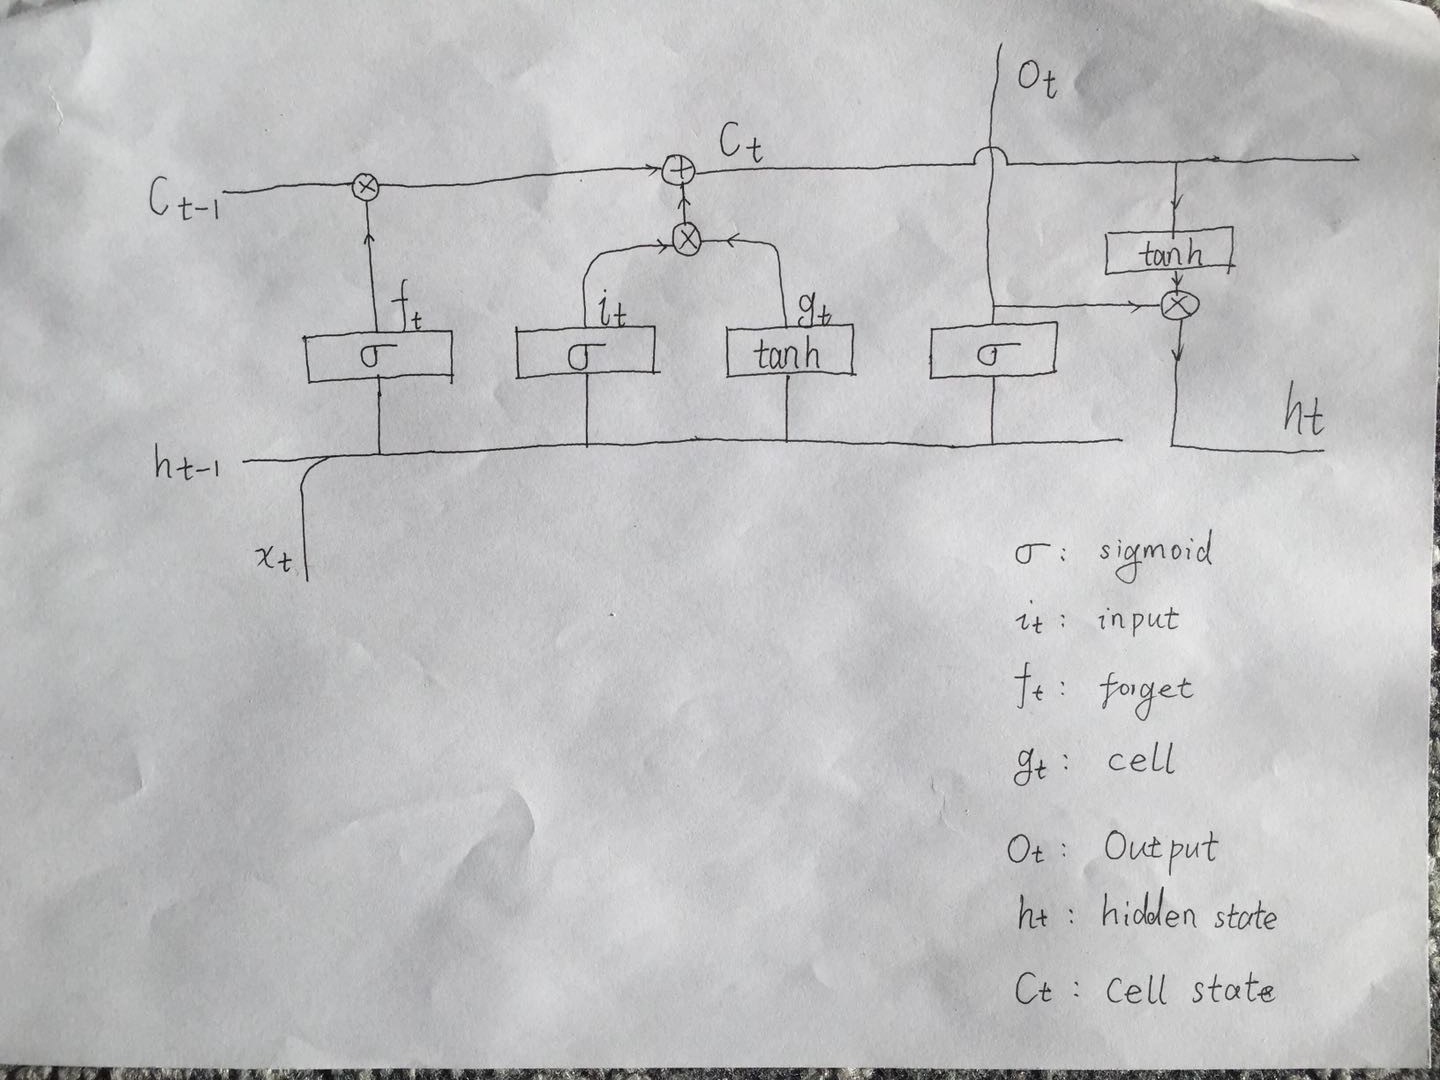 Ot
Ct
Ct-1
tanh
ft
it
gt
σ
σ
tanh
σ
ht
ht-1
xt
σ: sigmoid
it: input
ft: forget
gt: cell
Ot: Output
ht: hidden state
Ct: Cell state